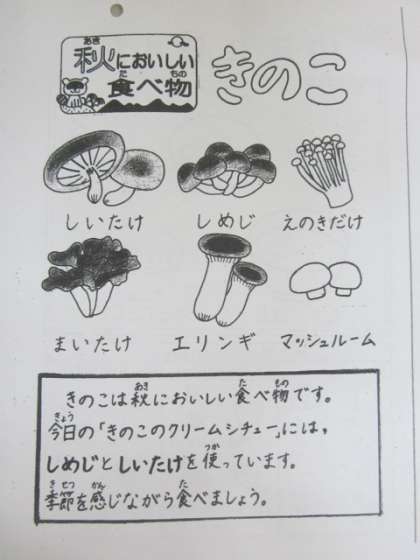 秋においしい
食べ物
きのこ
しいたけ
しめじ
えのきだけ
まいたけ
エリンギ
マッシュルーム
きのこは秋においしい食べ物です。
今日の「きのこのクリームシチュー」には、
しめじとしいたけを使っています。
季節を感じながら食べましょう。